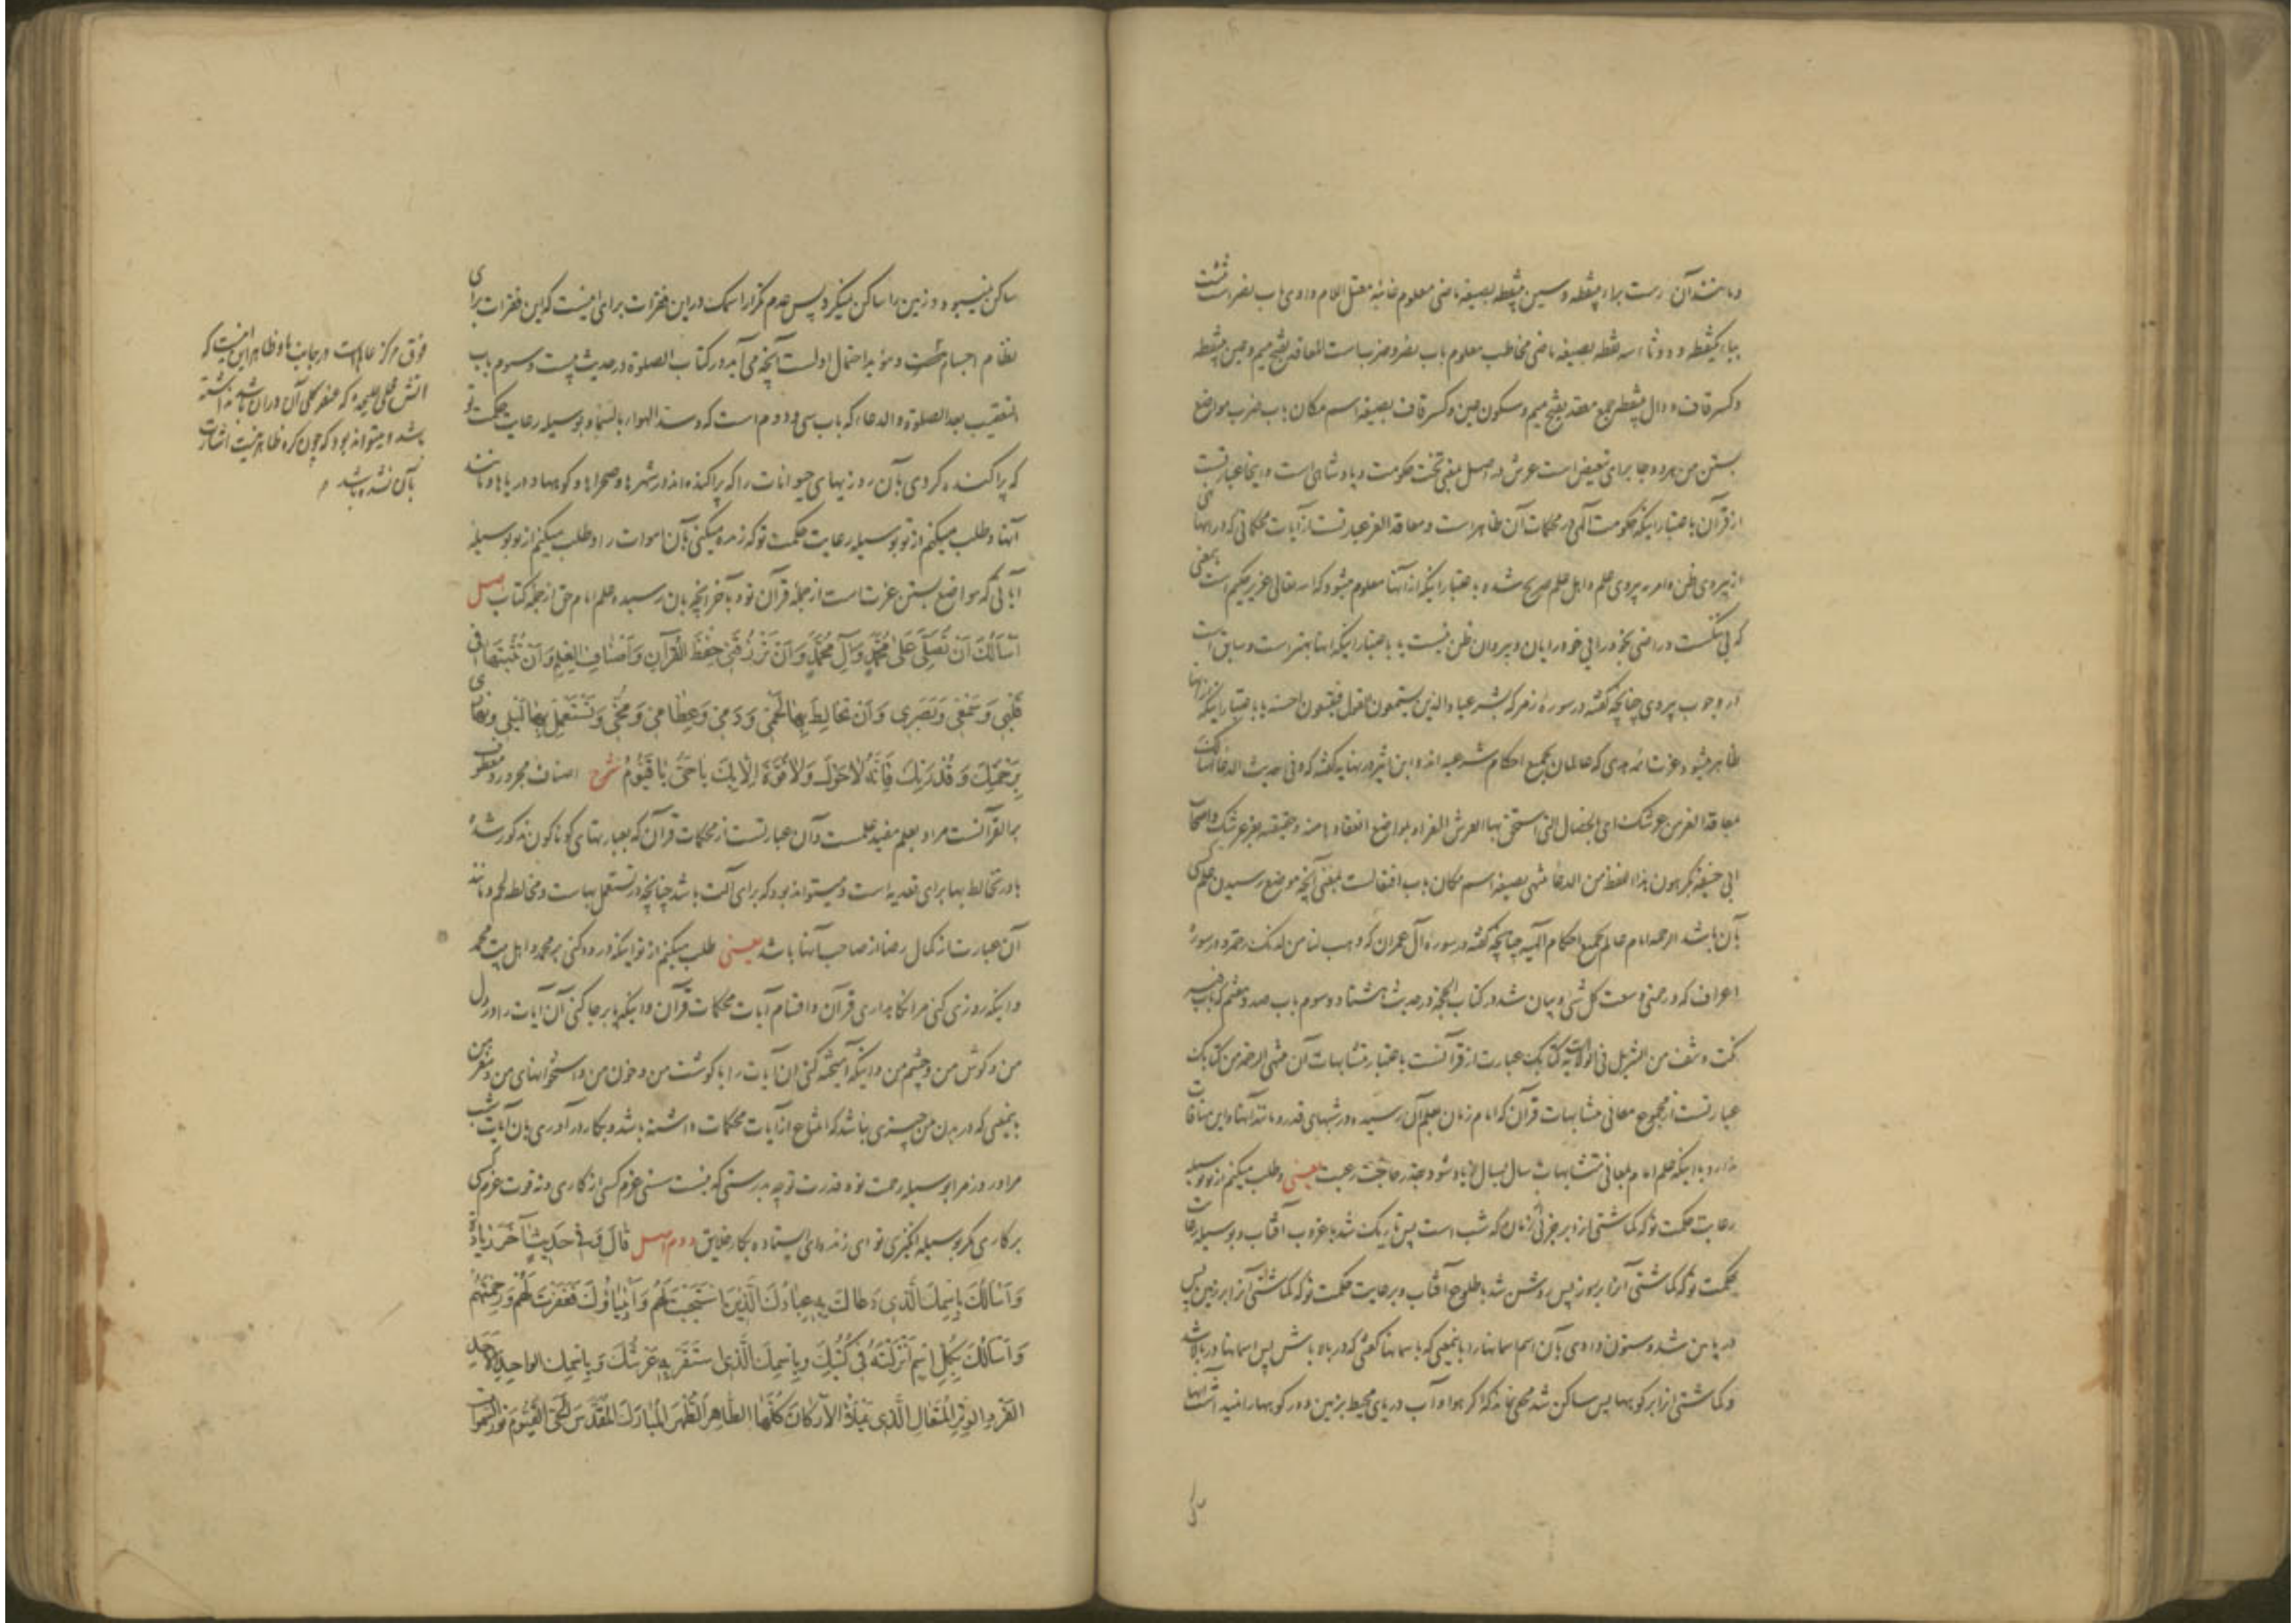 و مانند آن رست براء بینقطه و سین بینقطه بصیغه ماضی معلوم غائبه معتل اللام واوی باب نصر است شئت
بیاء یکنقطه و دو ثاء سه نقطه بصیغه ماضی مخاطب معلوم باب نصر و ضرب است المعاقد بفتح میم و عین بینقطه
و کسر قاف و دال بینقطه جمع معقد بفتح میم و سکون عین و کسر قاف بصیغه اسم مکان باب ضرب مواضع
بستن من هر دو جا برای تبعیض است عرش در اصل بمعنی تخت حکومت و پادشاهی است و اینجا عبارتست
از قرآن باعتبار اینکه حکومت الهی در محکمات آن ظاهر است و معاقد العز عبارتست از آیات محکماتی که در آنها نهی
از پیروی ظن و امر به پیروی علم و اهل علم صریح شده باعتبار اینکه از آنها معلوم میشود که الله تعالی عزیز حکیم است بمعنی
که بی ننگست و راضی بخودرایی خودرایان و پیروان ظن نیست یا باعتبار اینکه آنها بهتر است و سابق است
در وجوب پیروی چنانچه گفته در سوره زمر که فبشر عباد الذین یستمعون القول فیتبعون احسنه یا باعتبار اینکه از آنها
ظاهر میشود عزت ائمه هدی که عالمان بجمیع احکام شرعیه اند و ابن اثیر در نهایه گفته که و فی حدیث الدعا اسألک
بمعاقد العز من عرشک ای بالخصال التی استحق بها العرش العز او بمواضع انعقادها منه و حقیقته بعز عرشک و اصحاب
ابی حنیفه یکرهون هذا اللفظ من الدعا منتهی بصیغه اسم مکان باب افتعالست بمعنی آنچه موضع رسیدن علم کسی
بآن باشد الرحمه امام عالم بجمیع احکام الهیه چنانچه گفته در سوره آل عمران که و هب لنا من لدنک رحمة و در سوره
اعراف که و رحمتی وسعت کل شیء و بیان شد در کتاب الحجة در حدیث هشتاد و سوم باب صد و هفتم که باب فیه
نکت و نتف من التنزیل فی الولایة کتابک عبارت از قرآنست باعتبار متشابهات آن منتهی الرحمة من کتابک
عبارتست از مجموع معانی متشابهات قرآن که امام زمان بعلم آن رسیده در شبهای قدر و مانند آنها و این منافات
ندارد با اینکه علم امام بمعانی متشابهات سال بسال زیاد شود بقدر حاجت رعیت یعنی و طلب میکنم از تو بوسیله
رعایت حکمت تو که گماشتی آنرا بر جزئی از زمان که شب است پس تاریک شد بغروب آفتاب و بوسیله رعایت
حکمت تو که گماشتی آنرا بر روز پس روشن شد بطلوع آفتاب و برعایت حکمت تو که گماشتی آنرا بر زمین پس
دریا من شد و ستون دادی بآن اسم آسمانها را باینمعنی که بآسمانها گفتی که در بالا باش پس آسمانها در بالا شد
و گماشتی آنرا بر کوهها پس ساکن شد مخفی نماند که اگر هوا و آب دریای محیط بزمین و در کوهها راضیه است آنها
ساکن نمیبود و زمین را ساکن نمیکرد پس عدم تکرار اسمک در این فقرات برای اینست که این فقرات برای
نظام اجسام است و مؤید احتمال اولست آنچه می آید در کتاب الصلوة در حدیث بیست و سوم باب
التعقیب بعد الصلوة و الدعاء که باب سی و دوم است که و سد الهواء بالسماء و بوسیله رعایت حکمت تو
که پراکنده کردی بآن روزیهای حیوانات را که پراکنده اند در شهرها و صحراها و کوهها و دریاها و مانند
آنها و طلب میکنم از تو بوسیله رعایت حکمت تو که زنده میکنی بآن اموات را و طلب میکنم از تو بوسیله
آیاتی که مواضع بستن عزت است از جمله قرآن تو و بآخر آنچه بآن رسیده علم امام حق از جمله کتاب اصل
اَسْأَلُكَ اَنْ تُصَلِّيَ عَلىٰ مُحَمَّدٍ وَآلِ مُحَمَّدٍ وَاَنْ تَرْزُقَنِي حِفْظَ الْقُرْآنِ وَاَصْنَافَ الْعِلْمِ وَاَنْ تُثْبِتَهَا فِي
قَلْبِي وَسَمْعِي وَبَصَرِي وَاَنْ تُخَالِطَ بِهَا لَحْمِي وَدَمِي وَعِظَامِي وَمُخِّي وَتَسْتَعْمِلَ بِهَا لَيْلِي وَنَهَارِي
بِرَحْمَتِكَ وَقُدْرَتِكَ فَاِنَّهُ لَا حَوْلَ وَلَا قُوَّةَ اِلَّا بِكَ يَا حَيُّ يَا قَيُّومُ شرح اصناف مجرور و معطوف
بر القرآنست مراد بعلم مفید علمست و آن عبارتست از محکمات قرآن که بعبارتهای گوناگون مذکور شده
باء در تخالط بها برای تعدیه است و میتواند بود که برای آلت باشد چنانچه در تستعمل بهاست و مخالطه لحم و مانند
آن عبارت از کمال رضا از صاحب آنها باشد یعنی طلب میکنم از تو اینکه درود کنی بر محمد و اهل بیت محمد
و اینکه روزی کنی مرا نگاهداری قرآن و اقسام آیات محکمات قرآن و اینکه پابرجا کنی آن آیات را در دل
من و گوش من و چشم من و اینکه آمیخته کنی آن آیات را با گوشت من و خون من و استخوانهای من و مغز من
باینمعنی که در بدن من چیزی نباشد که امتناع از آیات محکمات داشته باشد و بکار در آوری بآن آیات شب
مرا و روز مرا بوسیله رحمت تو و قدرت تو چه بدرستی که نیست سستی عزم کسی از کاری و نه قوت عزم کسی
بر کاری مگر بوسیله انگیزی تو ای زنده ای ایستاده بکار خلایق دوم اصل قَالَ وَفِي حَدِيثٍ آخَرَ زِيَادَةُ
وَاَسْأَلُكَ بِاسْمِكَ الَّذِي دَعَاكَ بِهِ عِبَادُكَ الَّذِينَ اسْتَجَبْتَ لَهُمْ وَاَنْبِيَاؤُكَ فَغَفَرْتَ لَهُمْ وَرَحِمْتَهُمْ
وَاَسْأَلُكَ بِكُلِّ اسْمٍ اَنْزَلْتَهُ فِي كُتُبِكَ وَبِاسْمِكَ الَّذِي اسْتَقَرَّ بِهِ عَرْشُكَ وَبِاسْمِكَ الْوَاحِدِ الْاَحَدِ
الْفَرْدِ الْوِتْرِ الْمُتَعَالِ الَّذِي يَمْلَأُ الْاَرْكَانَ كُلَّهَا الطَّاهِرِ الْمُطَهَّرِ الْمُبَارَكِ الْمُقَدَّسِ الْحَيِّ الْقَيُّومِ نُورِ السَّمٰوَاتِ
فوق مرکز عالم است در جانب ما و ظاهر این اینست که
آتش محلی علیحده که عنصر کلی آن در آن باشد نداشته
باشد و میتواند بود که چون کره ظاهر نیست اشارت
بآن نشده باشد